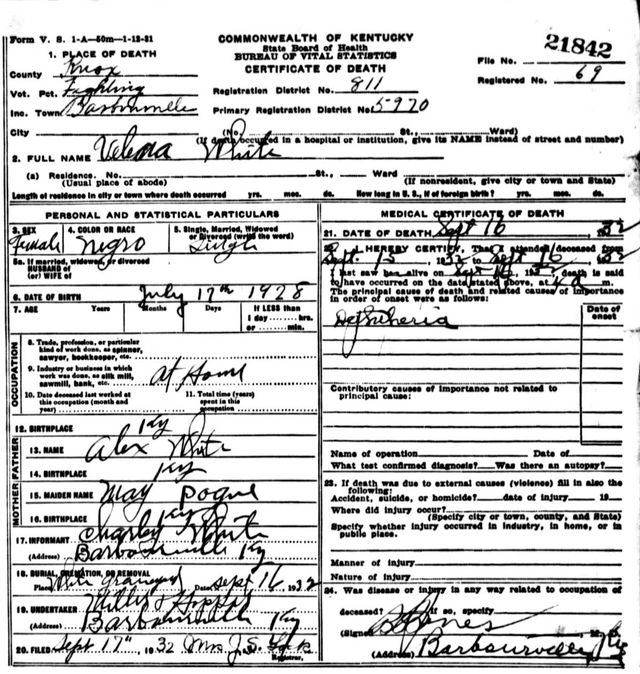 Form V. S. 1-A—50m—1-12-31
COMMONWEALTH OF KENTUCKY
State Board of Health
BUREAU OF VITAL STATISTICS
CERTIFICATE OF DEATH
21842
File No.
Registered No. 69
1. PLACE OF DEATH
County Knox
Vot. Pct. Fighting
Inc. Town Barbourville
Registration District No. 811
Primary Registration District No. 5970
City (No. St., Ward)
(If death occurred in a hospital or institution, give its NAME instead of street and number)
2. FULL NAME Velma White
(a) Residence. No. St., Ward
(Usual place of abode) (If nonresident, give city or town and State)
Length of residence in city or town where death occurred yrs. mos. ds. How long in U. S., if of foreign birth? yrs. mos. ds.
PERSONAL AND STATISTICAL PARTICULARS
3. SEX Female
4. COLOR OR RACE Nigro
5. Single, Married, Widowed or Divorced (write the word) Single
5a. If married, widowed, or divorced
HUSBAND of
(or) WIFE of
6. DATE OF BIRTH July 17th 1928
7. AGE Years Months Days If LESS than
1 day hrs.
or min.
OCCUPATION
8. Trade, profession, or particular
kind of work done, as spinner,
sawyer, bookkeeper, etc.
9. Industry or business in which
work was done, as silk mill,
sawmill, bank, etc. at Home
10. Date deceased last worked at
this occupation (month and
year)
11. Total time (years)
spent in this
occupation
12. BIRTHPLACE Ky
FATHER
13. NAME Alex White
14. BIRTHPLACE Ky
MOTHER
15. MAIDEN NAME May Pogue
16. BIRTHPLACE Ky
17. INFORMANT Charley White
(Address) Barbourville Ky
18. BURIAL, CREMATION, OR REMOVAL
Place White Graveyard Date Sept 16 1932
19. UNDERTAKER
(Address) Barbourville Ky
20. FILED Sept 17th 1932 Mrs J. S.
Registrar.
MEDICAL CERTIFICATE OF DEATH
21. DATE OF DEATH Sept 16 1932
22. I HEREBY CERTIFY, That I attended deceased from
Sept 15 1932 to Sept 16 1932
I last saw her alive on Sept 16, 1932 death is said
to have occurred on the date stated above, at 4 a m.
The principal cause of death and related causes of importance
in order of onset were as follows:
Date of
onset
Diptheria
Contributory causes of importance not related to
principal cause:
Name of operation Date of
What test confirmed diagnosis? Was there an autopsy?
23. If death was due to external causes (violence) fill in also the
following:
Accident, suicide, or homicide? date of injury 19
Where did injury occur?
(Specify city or town, county, and State)
Specify whether injury occurred in industry, in home, or in
public place.
Manner of injury
Nature of injury
24. Was disease or injury in any way related to occupation of
deceased? If so, specify
(Signed) Jones M. D.
(Address) Barbourville, Ky